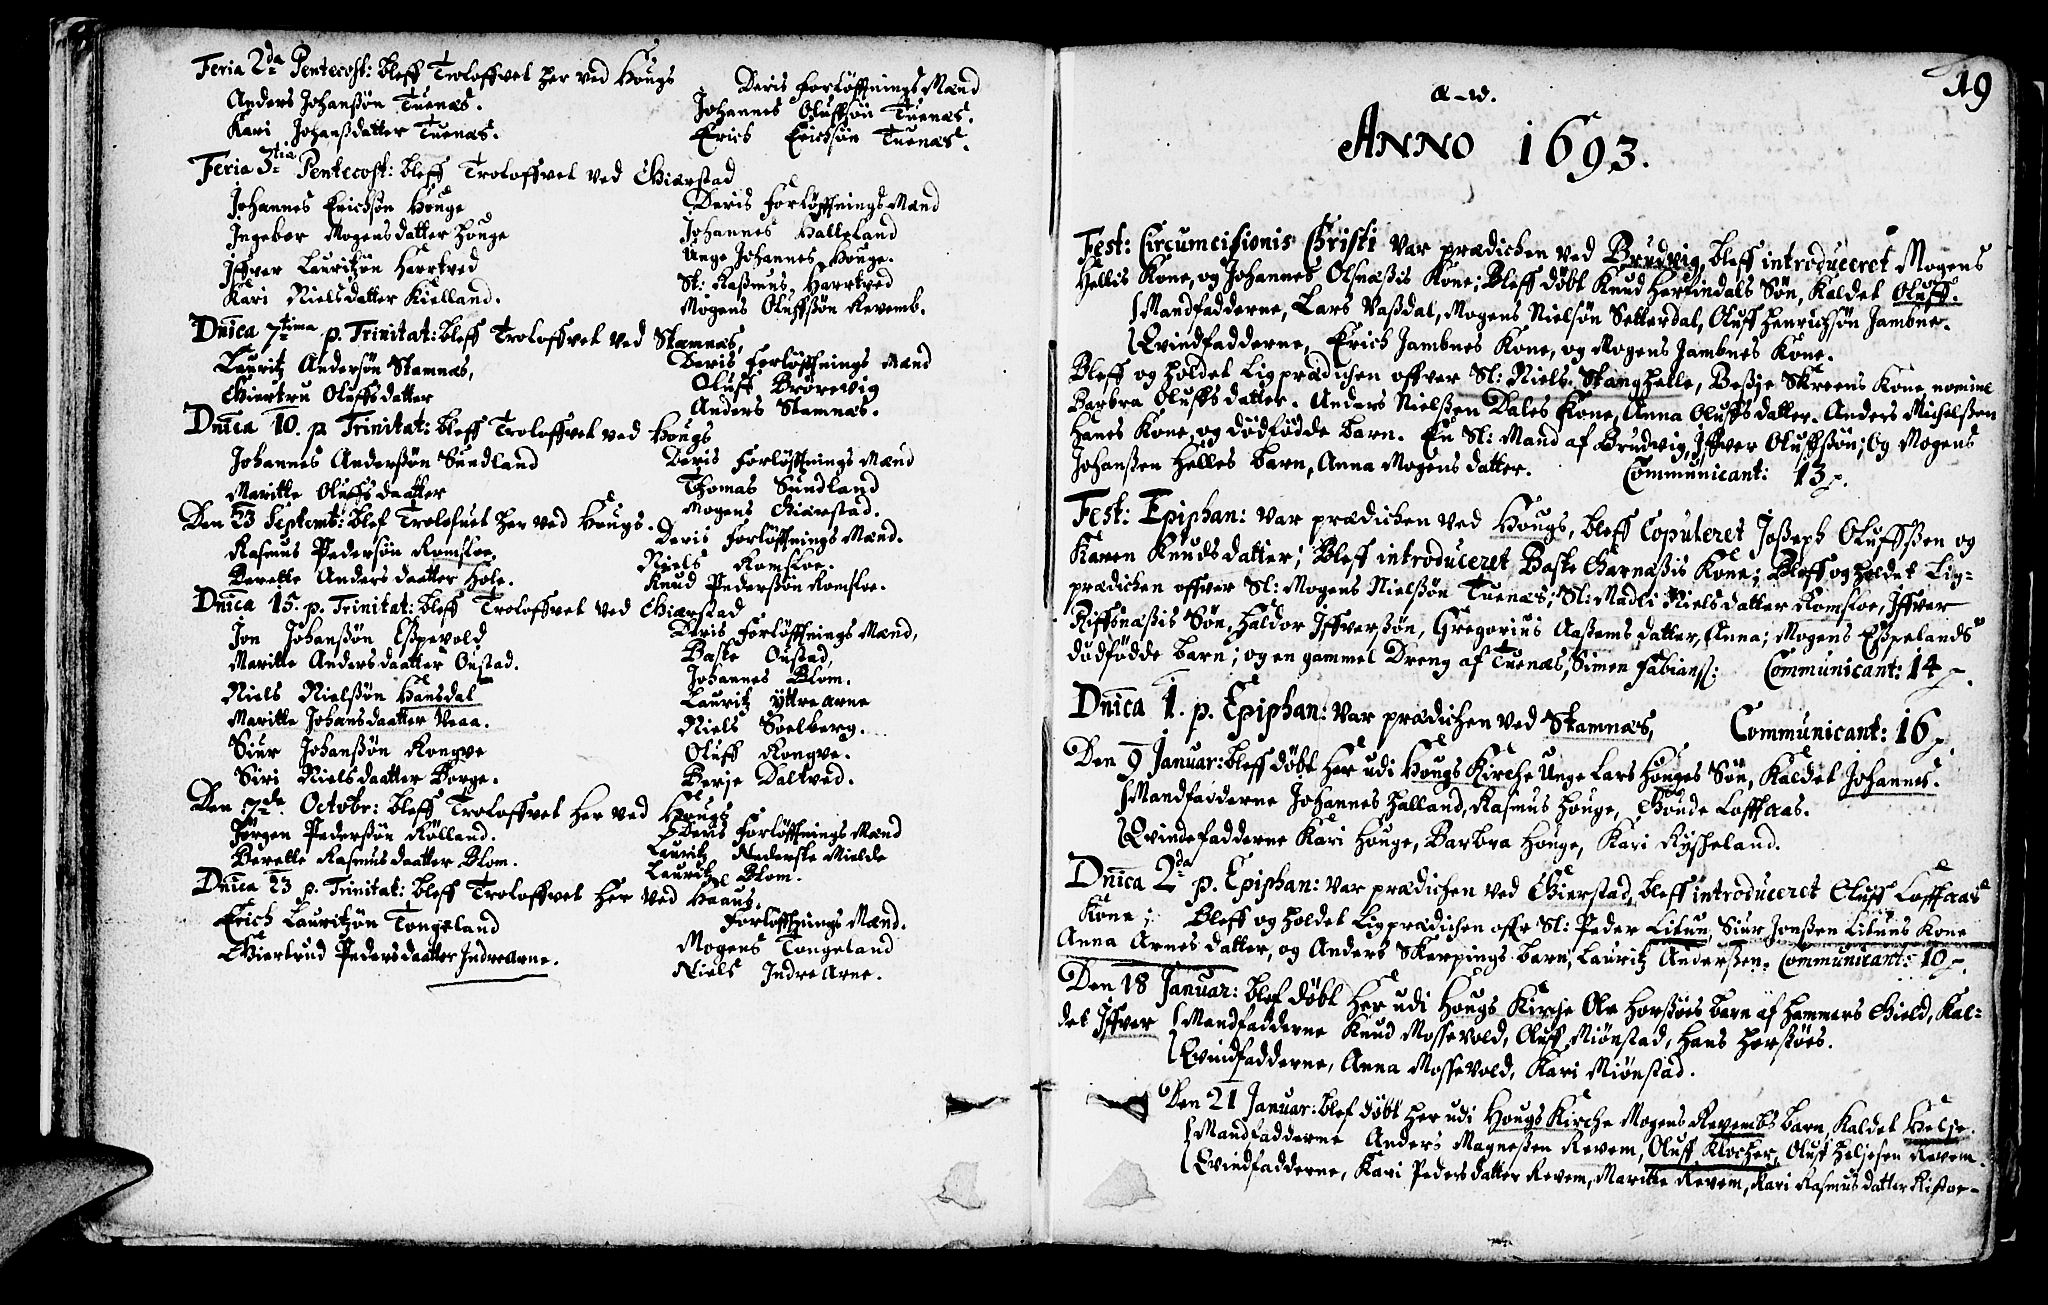 Feria 2da Pentecost: bleff Troloffvet her ved Hougs
Anders Johanßön Tuenæs.
Kari Johanßdatter Tuenæs.
Deris Forlöffnings Mænd
Johannes Oluffsön Tuenæs.
Erich Erichsön Tuenæs.
Feria 3tia Pentecost: bleff Troloffvet ved Giærstad
Johannes Erichsön Houge
Ingebor Mogensdatter Houge
Iffver Lauritzön Hærtved
Kari Nielsdatter Kielland.
Deris Forlöffnings Mænd
Johannes Halleland
Unge Johannes Houge.
Sl: Raßmus Hartved
Mogens Oluffsön Revemb.
Dnica 7tima p. Trinitat: bleff Troloffvet ved Stamnæs,
Lauritz Andersön Stamnæs,
Giertru Oluffsdatter
Deris Forlöffnings Mænd
Oluff Brörevig
Anders Stamnæs.
Dnica 10. p Trinitat: bleff Troloffvet ved Hougs
Johannes Anderßön Sundland
Maritte Oluffsdaatter
Deris Forlöffnings Mænd
Thomas Sundland
Mogens Giærstad.
Den 23 Septemb: blef Trolofvet her ved Hougs.
Rasmus Pedersön Romsloe.
Berette Andersdaatter Hole.
Deris Forlöffnings Mænd.
Niels Romsloe.
Knud Pederßön Romsloe.
Dnica 15. p. Trinitat: bleff Troloffvet ved Giærstad
Jon Johanßön Eßpevold
Maritte Andersdaatter Oustad.
Niels Nielßön Hansdal
Maritte Johansdaatter Veaa.
Siur Johanßön Rongve
Siri Nielsdaatter Borge.
Deris Forlöffnings Mænd,
Baste Oustad,
Johannes Blom.
Lauritz Yttrearne
Niels Soelberg.
Oluff Rongve.
Berje Daltved.
Den 7de. Octobr: bleff Troloffvet her ved Hougs
Jörgen Pederßön Rölland.
Berette Rasmusdaatter Blom.
Deris Forlöffnings Mænd
Lauritz Nederste Mielde
Lauritz Blom.
Dnica 23 p. Trinitat: bleff Troloffvet her ved Haaus.
Erich Lauritzön Tongeland
Giertrud Pedersdaatter Indrearne.
Forlöffnings Mænd.
Mogens Tongeland
Niels Indre Arne.
19
ANNO 1693.
Fest: Circumcisionis Christi var prædichen ved Brudvig, bleff introduceret Mogens
Hellis Kone, og Johannes Olsnæßis Kone; Bleff döbt Knud Herfindals Sön, kaldet Oluff.
Mandfadderne, Lars Vaßdal, Mogens Nielsön Setterdal, Oluff Henrichsön Jambne.
Qvindfadderne, Erich Jambnes Kone, og Mogens Jambnes Kone.
Bleff og holdet Ligprædichen offver Sl: Niels Stanghelle, Beßje Skreens Kone nomine
Barbra Oluffsdatter. Anders Nielßen Dales Kone, Anna Oluffsdatter. Anders Michelßen
Hanes Kone, og dödfödde barn. En Sl: Mand af Brudvig, Iffver Oluffßön; Og Mogens
Johanßen Helles barn, Anna Mogens datter. Communicant: 13.
Fest: Epiphan: var prædichen ved Hougs, bleff Copuleret Joßeph Oluffßen og
Karen Knudsdatter; Bleff introduceret Baste Garnæßis Kone; Bleff og holdet Lig-
prædichen offver Sl: Mogens Nielßön Tuenæs; Sl: Madli Nielsdatter Romsloe, Iffver
Riffsnæßis Sön, Haldor Iffverßön, Gregorius Aaßems datter, Anna; Mogens Eßpelands
dödfödde barn; og en gammel Dreng af Tuenæs, Simen Fabians: Communicant: 14.
Dnica 1. p. Epiphan: var prædichen ved Stamnæs, Communicant: 16
Den 9 Januar: bleff döbt her udi Hougs Kirche Unge Lars Houges Sön, kaldet Johannes.
Mandfadderne Johannes Halland, Rasmus Houge, Gounde Lofthaas.
Qvindefadderne Kari Houge, Barbra Houge, Kari Ryssheland.
Dnica 2da p. Epiphan: var prædichen ved Gierstad, bleff introduceret Oluff Loffthaas
Kone; Bleff og holdet Ligprædichen offr Sl: Peder Litun, Siur Jonßen Lituns Kone
Anna Arnes datter, og Anders Skerpings barn, Lauritz Anderßen. Communicant: 10.
Den 18 Januar: blef döbt her udi Hougs Kirche Ole Horßöes barn af Hammers Gield, Kal-
det Iffver Mandfadderne Knud Mossevold, Oluff Miönstad, Hans Horßöes.
Qvindfadderne, Anna Mossevold, Kari Miönstad.
Den 21 Januar: blef döbt her udi Hougs Kirche Mogens Revembs barn, kaldet Helje.
Mandfadderne Anders Magneßen Revem, Oluff Klocher, Oluf Heljesen Revem.
Qvindfadderne, Kari Pedersdatter Revem, Maritte Revem, Kari Rasmusdatter Ristoe-